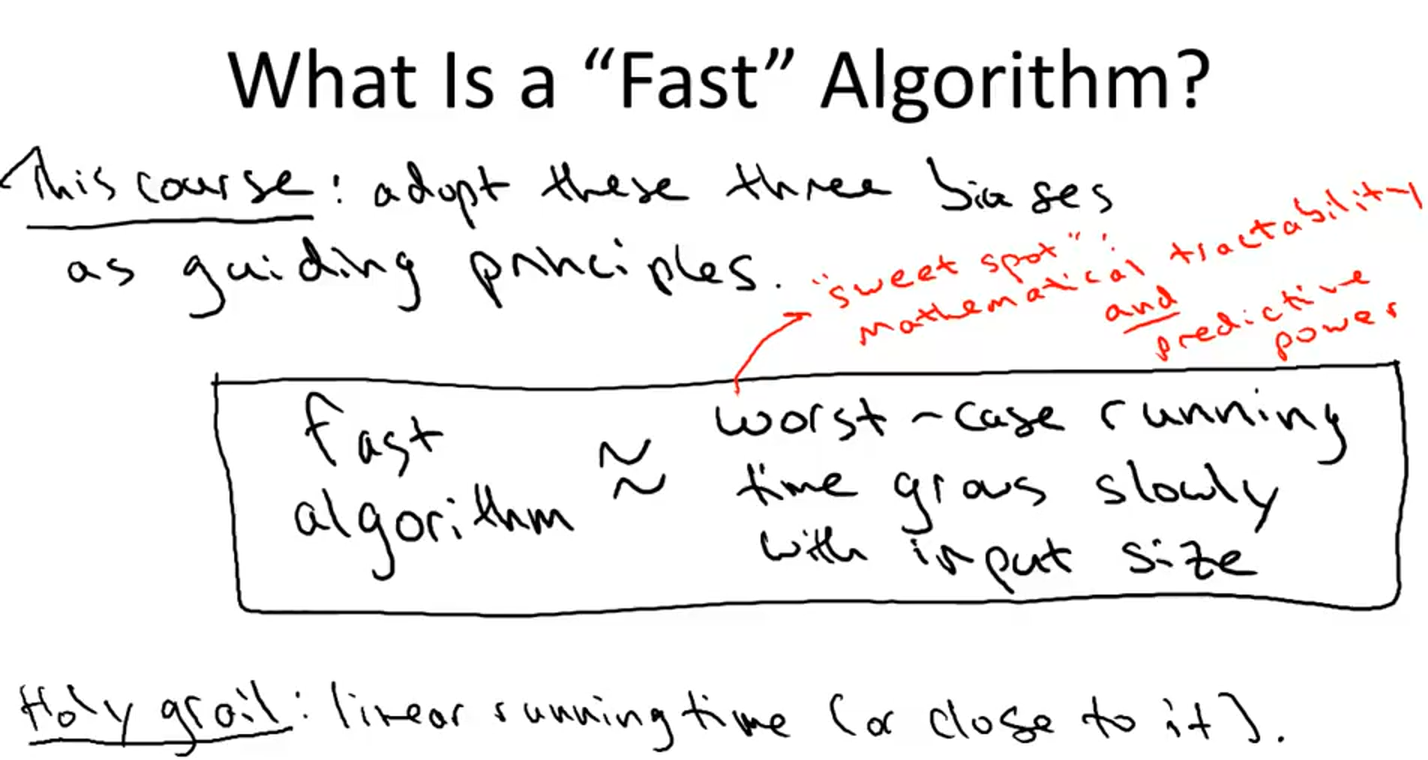 What Is a “Fast” Algorithm?
This course: adopt these three biases
as guiding principles.
"sweet spot":
mathematical tractability
and
predictive
power
fast
algorithm
≈
worst-case running
time grows slowly
with input size
Holy grail: linear running time (or close to it).